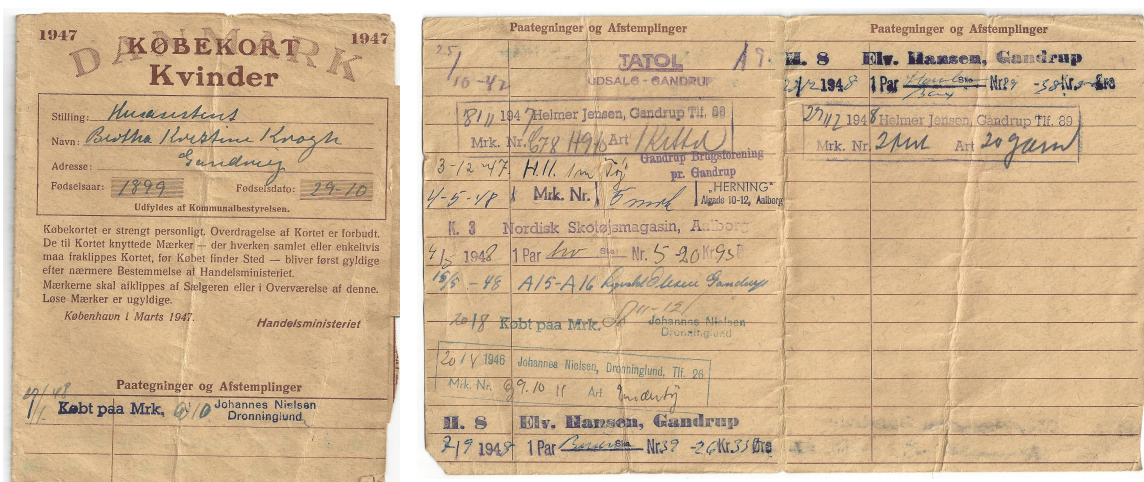 1947 1947
DANMARK
KØBEKORT
Kvinder
Stilling:
Navn: Kristine Krogh
Adresse: Gandrup
Fødselsaar: 1899 Fødselsdato: 29-10
Udfyldes af Kommunalbestyrelsen.
Købekortet er strengt personligt. Overdragelse af Kortet er forbudt.
De til Kortet knyttede Mærker — der hverken samlet eller enkeltvis
maa fraklippes Kortet, før Købet finder Sted — bliver først gyldige
efter nærmere Bestemmelse af Handelsministeriet.
Mærkerne skal afklippes af Sælgeren eller i Overværelse af denne.
Løse Mærker er ugyldige.
København i Marts 1947.
Handelsministeriet
Paategninger og Afstemplinger
Købt paa Mrk. Johannes Nielsen
Dronninglund
Paategninger og Afstemplinger
25/
10-47
TATOL A9.
UDSALG-GANDRUP
8/11 1947 Helmer Jensen, Gandrup Tlf. 89
Mrk. Nr. Art
3-12-47. H.11. 1 m Tøj Gandrup Brugsforening
pr. Gandrup
4-5-48 Mrk. Nr. "HERNING"
Algade 10-12, Aalborg
K. 3 Nordisk Skotøjsmagasin, Aalborg
1948 1 Par Sko Nr. 5 - 20 Kr. 95
15/5 - 48 A15-A16 Olesen Gandrup
Købt paa Mrk. 11-12/ Johannes Nielsen
Dronninglund
1946 Johannes Nielsen, Dronninglund, Tlf. 26
Mrk. Nr. 9.10 11 Art Undertøj
H. 8 Elv. Hansen, Gandrup
2/9 1948 1 Par Sko Nr. 39 - 26 Kr. 35 Øre
Paategninger og Afstemplinger
H. 8 Elv. Hansen, Gandrup
1948 1 Par Sko Nr. 39 - 38 Kr. Øre
1948 Helmer Jensen, Gandrup Tlf. 89
Mrk. Nr. Art garn